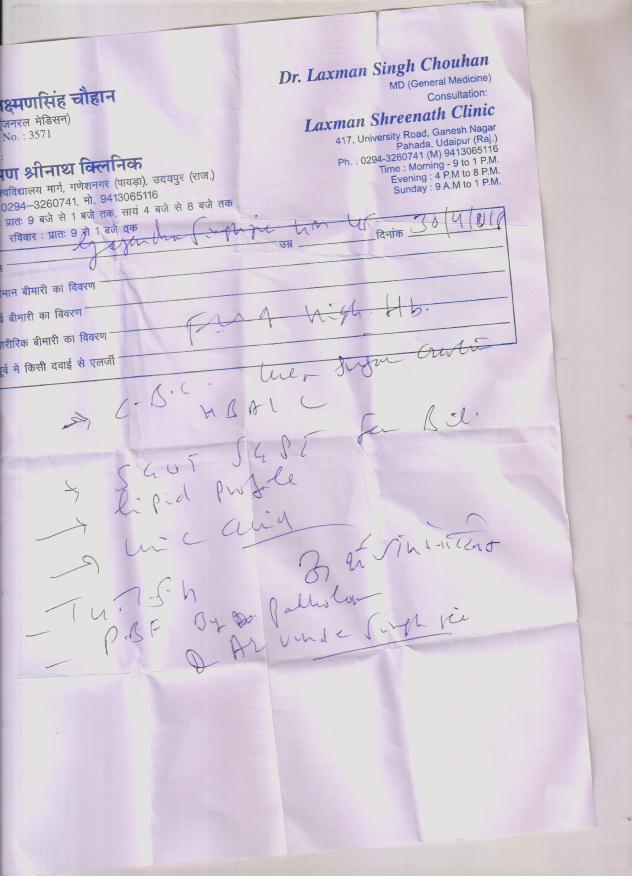 क्ष्मणसिंह चौहान
(जनरल मेडिसन)
No. : 3571
मण श्रीनाथ क्लिनिक
श्वविद्यालय मार्ग, गणेशनगर (पायड़ा), उदयपुर (राज.)
0294–3260741, मो. 9413065116
प्रातः 9 बजे से 1 बजे तक, सायं 4 बजे से 8 बजे तक
रविवार : प्रातः 9 से 1 बजे तक
Dr. Laxman Singh Chouhan
MD (General Medicine)
Consultation:
Laxman Shreenath Clinic
417, University Road, Ganesh Nagar
Pahada, Udaipur (Raj.)
Ph. : 0294-3260741 (M) 9413065116
Time : Morning - 9 to 1 P.M.
Evening : 4 P.M to 8 P.M.
Sunday : 9 A.M to 1 P.M.
उम्र दिनांक
र्तमान बीमारी का विवरण
बीमारी का विवरण
ारीरिक बीमारी का विवरण
पूर्व में किसी दवाई से एलर्जी
High Hb.
C.B.C.
HBA1C
SGOT SGPT
lipid profile
uric acid
T.S.H
PBF By
Singh